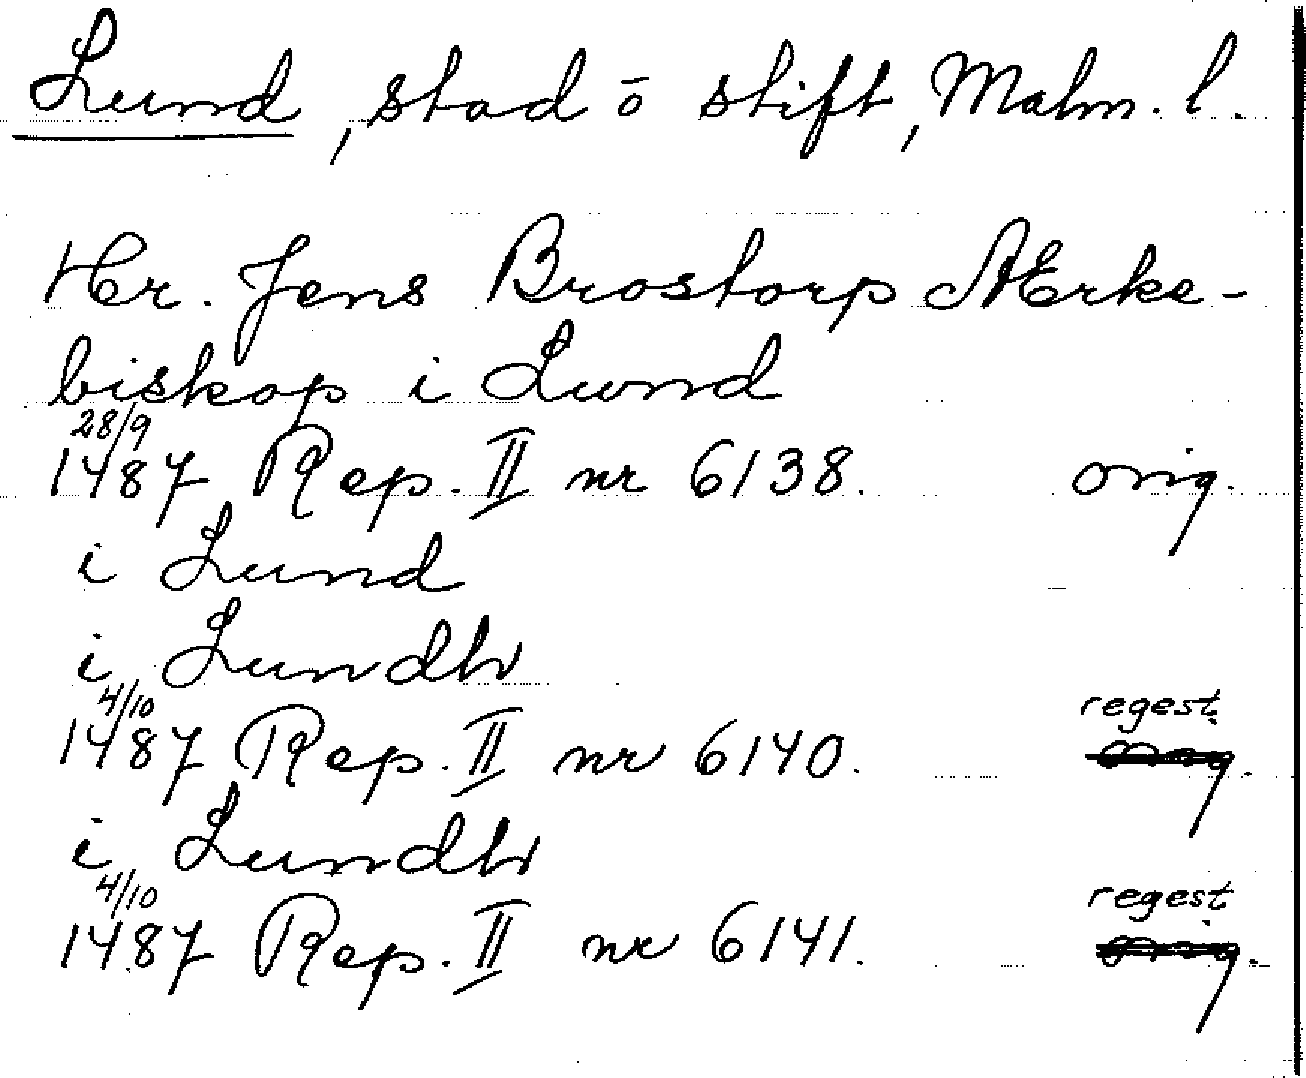 Lund, stad o stift, Malm. l.
Hr. Jens Brostorp Ærke-
biskop i Lund
28/9
1487 Rep. II nr 6138. orig.
i Lund
i Lundh
4/10 regest.
1487 Rep. II nr 6140. orig.
i Lundh
4/10 regest.
1487 Rep. II nr 6141. orig.